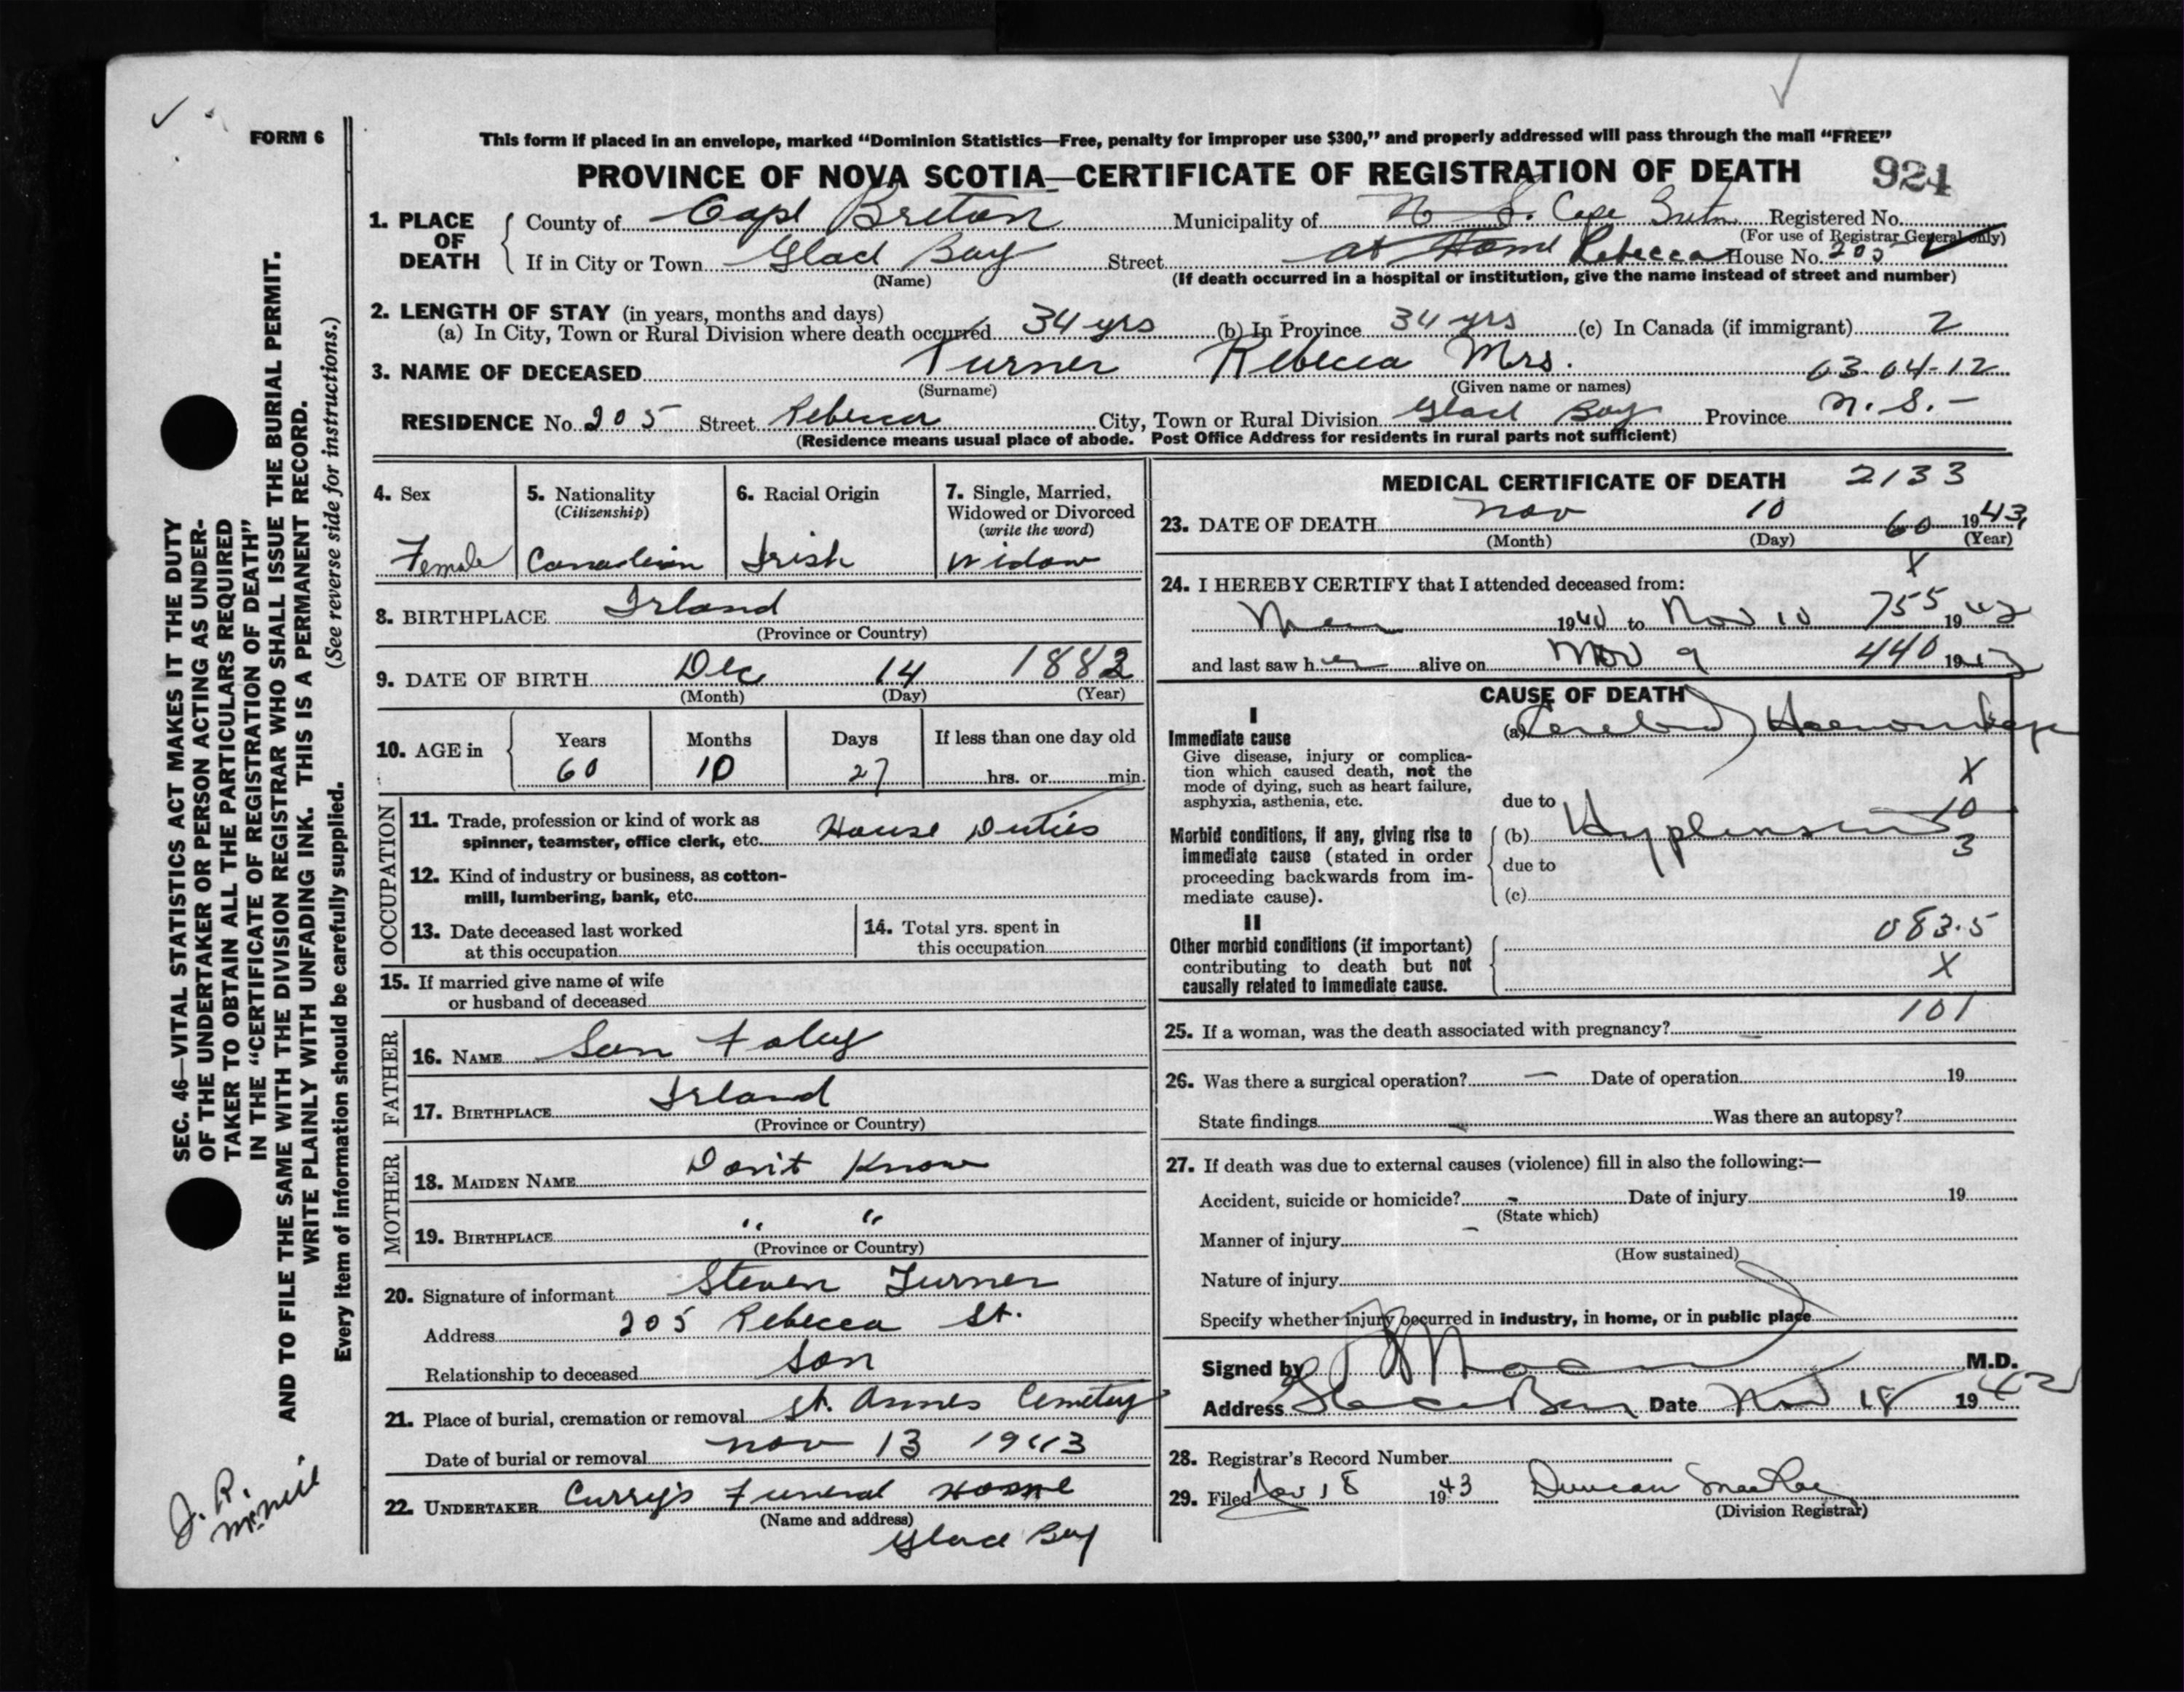 FORM 6
This form if placed in an envelope, marked “Dominion Statistics—Free, penalty for improper use $300,” and properly addressed will pass through the mail “FREE”
PROVINCE OF NOVA SCOTIA—CERTIFICATE OF REGISTRATION OF DEATH 924
1. PLACE OF DEATH
County of Cape Breton Municipality of N. S. Cape Breton Registered No.
(For use of Registrar General only)
If in City or Town Glace Bay Street at Home Rebecca House No. 205
(Name) (If death occurred in a hospital or institution, give the name instead of street and number)
2. LENGTH OF STAY (in years, months and days)
(a) In City, Town or Rural Division where death occurred 34 yrs (b) In Province 34 yrs (c) In Canada (if immigrant) 2
3. NAME OF DECEASED Turner Rebecca Mrs. 03-04-12
(Surname) (Given name or names)
RESIDENCE No. 205 Street Rebecca City, Town or Rural Division Glace Bay Province N. S. -
(Residence means usual place of abode. Post Office Address for residents in rural parts not sufficient)
4. Sex Female
5. Nationality (Citizenship) Canadian
6. Racial Origin Irish
7. Single, Married, Widowed or Divorced (write the word) Widow
8. BIRTHPLACE Irland
(Province or Country)
9. DATE OF BIRTH Dec 14 1882
(Month) (Day) (Year)
10. AGE in Years 60 Months 10 Days 27 If less than one day old hrs. or min.
OCCUPATION
11. Trade, profession or kind of work as spinner, teamster, office clerk, etc. House Duties
12. Kind of industry or business, as cotton-mill, lumbering, bank, etc.
13. Date deceased last worked at this occupation
14. Total yrs. spent in this occupation
15. If married give name of wife or husband of deceased
FATHER
16. NAME Foley
17. BIRTHPLACE Irland
(Province or Country)
MOTHER
18. MAIDEN NAME Don't Know
19. BIRTHPLACE " "
(Province or Country)
20. Signature of informant Steven Turner
Address 205 Rebecca St.
Relationship to deceased son
21. Place of burial, cremation or removal St. Annes Cemetery
Date of burial or removal Nov 13 1943
22. UNDERTAKER Curry's Funeral Home
(Name and address)
Glace Bay
MEDICAL CERTIFICATE OF DEATH 2133
23. DATE OF DEATH Nov 10 60 1943
(Month) (Day) (Year)
X
24. I HEREBY CERTIFY that I attended deceased from:
1940 to Nov 10 755 1943
and last saw her alive on Nov 9 440 1943
CAUSE OF DEATH
I
Immediate cause
Give disease, injury or complication which caused death, not the mode of dying, such as heart failure, asphyxia, asthenia, etc.
(a) Cerebral Haemorrhage
X
due to
10
Morbid conditions, if any, giving rise to immediate cause (stated in order proceeding backwards from immediate cause).
(b) Hypertension
3
due to
(c)
II
Other morbid conditions (if important) contributing to death but not causally related to immediate cause.
083.5
X
101
25. If a woman, was the death associated with pregnancy? —
26. Was there a surgical operation? — Date of operation 19
State findings Was there an autopsy?
27. If death was due to external causes (violence) fill in also the following:—
Accident, suicide or homicide? - Date of injury 19
(State which)
Manner of injury -
(How sustained)
Nature of injury
Specify whether injury occurred in industry, in home, or in public place
Signed by M.D.
Address Glace Bay Date Nov 18 1943
28. Registrar's Record Number
29. Filed Nov 18 1943 Duncan MacRae
(Division Registrar)
SEC. 46—VITAL STATISTICS ACT MAKES IT THE DUTY
OF THE UNDERTAKER OR PERSON ACTING AS UNDER-
TAKER TO OBTAIN ALL THE PARTICULARS REQUIRED
IN THE “CERTIFICATE OF REGISTRATION OF DEATH”
AND TO FILE THE SAME WITH THE DIVISION REGISTRAR WHO SHALL ISSUE THE BURIAL PERMIT.
WRITE PLAINLY WITH UNFADING INK. THIS IS A PERMANENT RECORD.
Every item of information should be carefully supplied. (See reverse side for instructions.)
J. R. McNeil